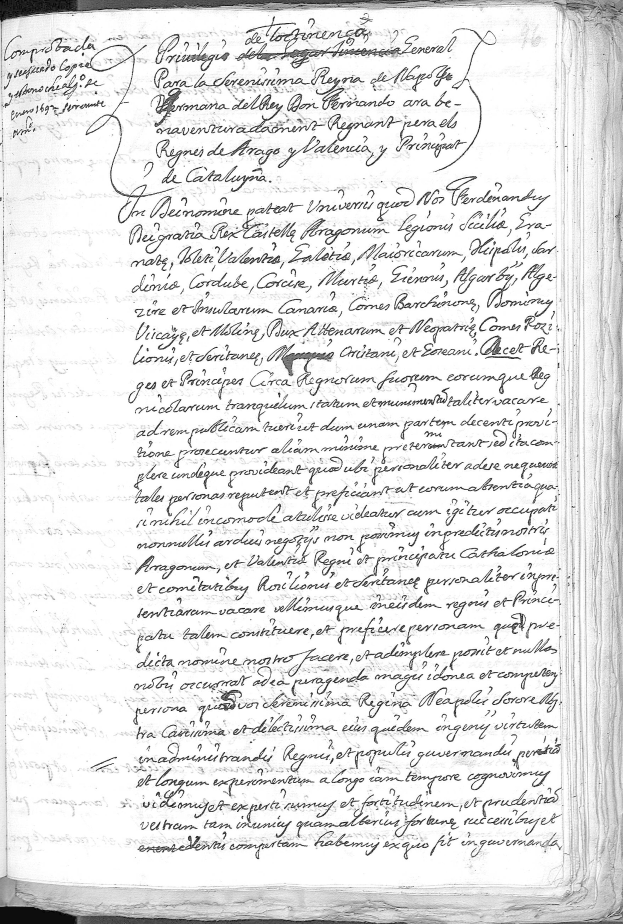 Comprobada
de loctinença
Privilegio General
Para la Serenissima Reyna de Napols
Germana del Rey Don Fernando ara be-
naventuradament Regnant pera els
Regnes de Arago y Valencia, y Principat
de Cataluyña.
In Dei nomine pateat Universis quod Nos Ferdinandus
Dei gratia Rex Castellę Aragonum Legionis Siciliæ, Gra-
natę, Toleti, Valentiæ, Galetiæ, Maioricarum, Hispalis, Sar-
diniæ, Cordube, Corcice, Murtiæ, Giennis, Algarbij, Alge-
zire et Insularum Canariæ, Comes Barchinonę, Dominus
Vizcayę, et Molinę, Dux Athenarum et Neopatrię Comes Rozi-
lionis, et Seritanę, Oristani, et Goseani. Decet Re-
ges et Principes Circa Regnorum suorum eorumque Reg
nicolarum tranquilum statum et taliter vacare
ad rem publicam tueri ut dum unam partem decenti provi-
tione prosecuntur aliam minime pretermitant sed ita com-
plere undeque provideant quod ubi personaliter adese nequeunt
tales personas reputent et preficiant ut eorum absentia qua-
si nihil incomode atulise videatur cum igitur occupati
nonnullis arduis negozijs non posimus in predictis nostris
Aragonum, et Valentiæ Regni et principatu Cathaloniæ
et comitatibus Rosilionis et Seritanę personaliter inpre
sentiarum vacare vellimusque in eisdem regnis et Princi-
patu talem constituere, et preficere personam quę pre-
dicta nomine nostro facere, et adimplere posit et nulla
nobis occurrat ad ea peragenda magis idonea et competens
persona quam vos Serenissima Regina Neapolis Sorore Nos-
tra Carisima et dilectissima eius quidem ingenij virtutem
in administrandis Regnis, et populis guvernandis
et longum experimentum a longo iam tempore cognovimus
vidimus et experti sumus et fortitudinem, et prudentiã
vestram tam in unius quam alterius fortunę successibus et
compertam habemus ex quo fit in guvernanda